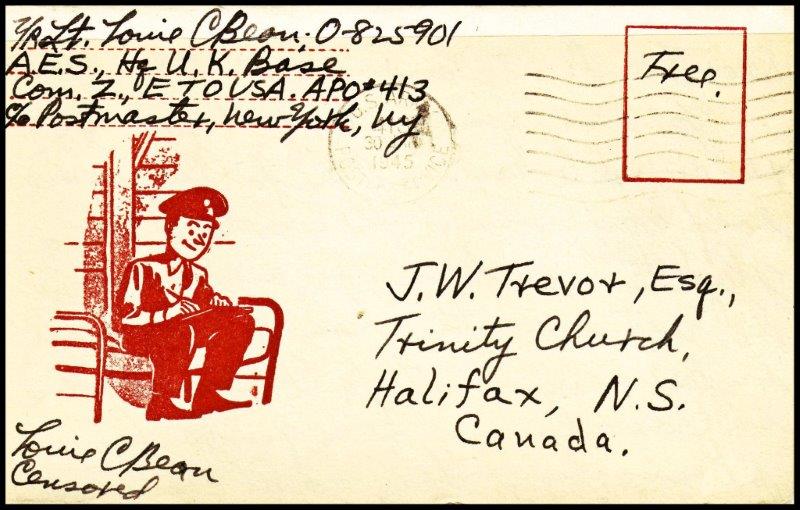 1/Lt. Louie C Bean, O-825901
A.E.S., Hq U.K. Base
Com. Z, ETOUSA. APO #413
c/o Postmaster, New York, Ny
Free.
30
1945
J.W. Trevor, Esq.,
Trinity Church,
Halifax, N.S.
Canada.
Louie C Bean
Censored